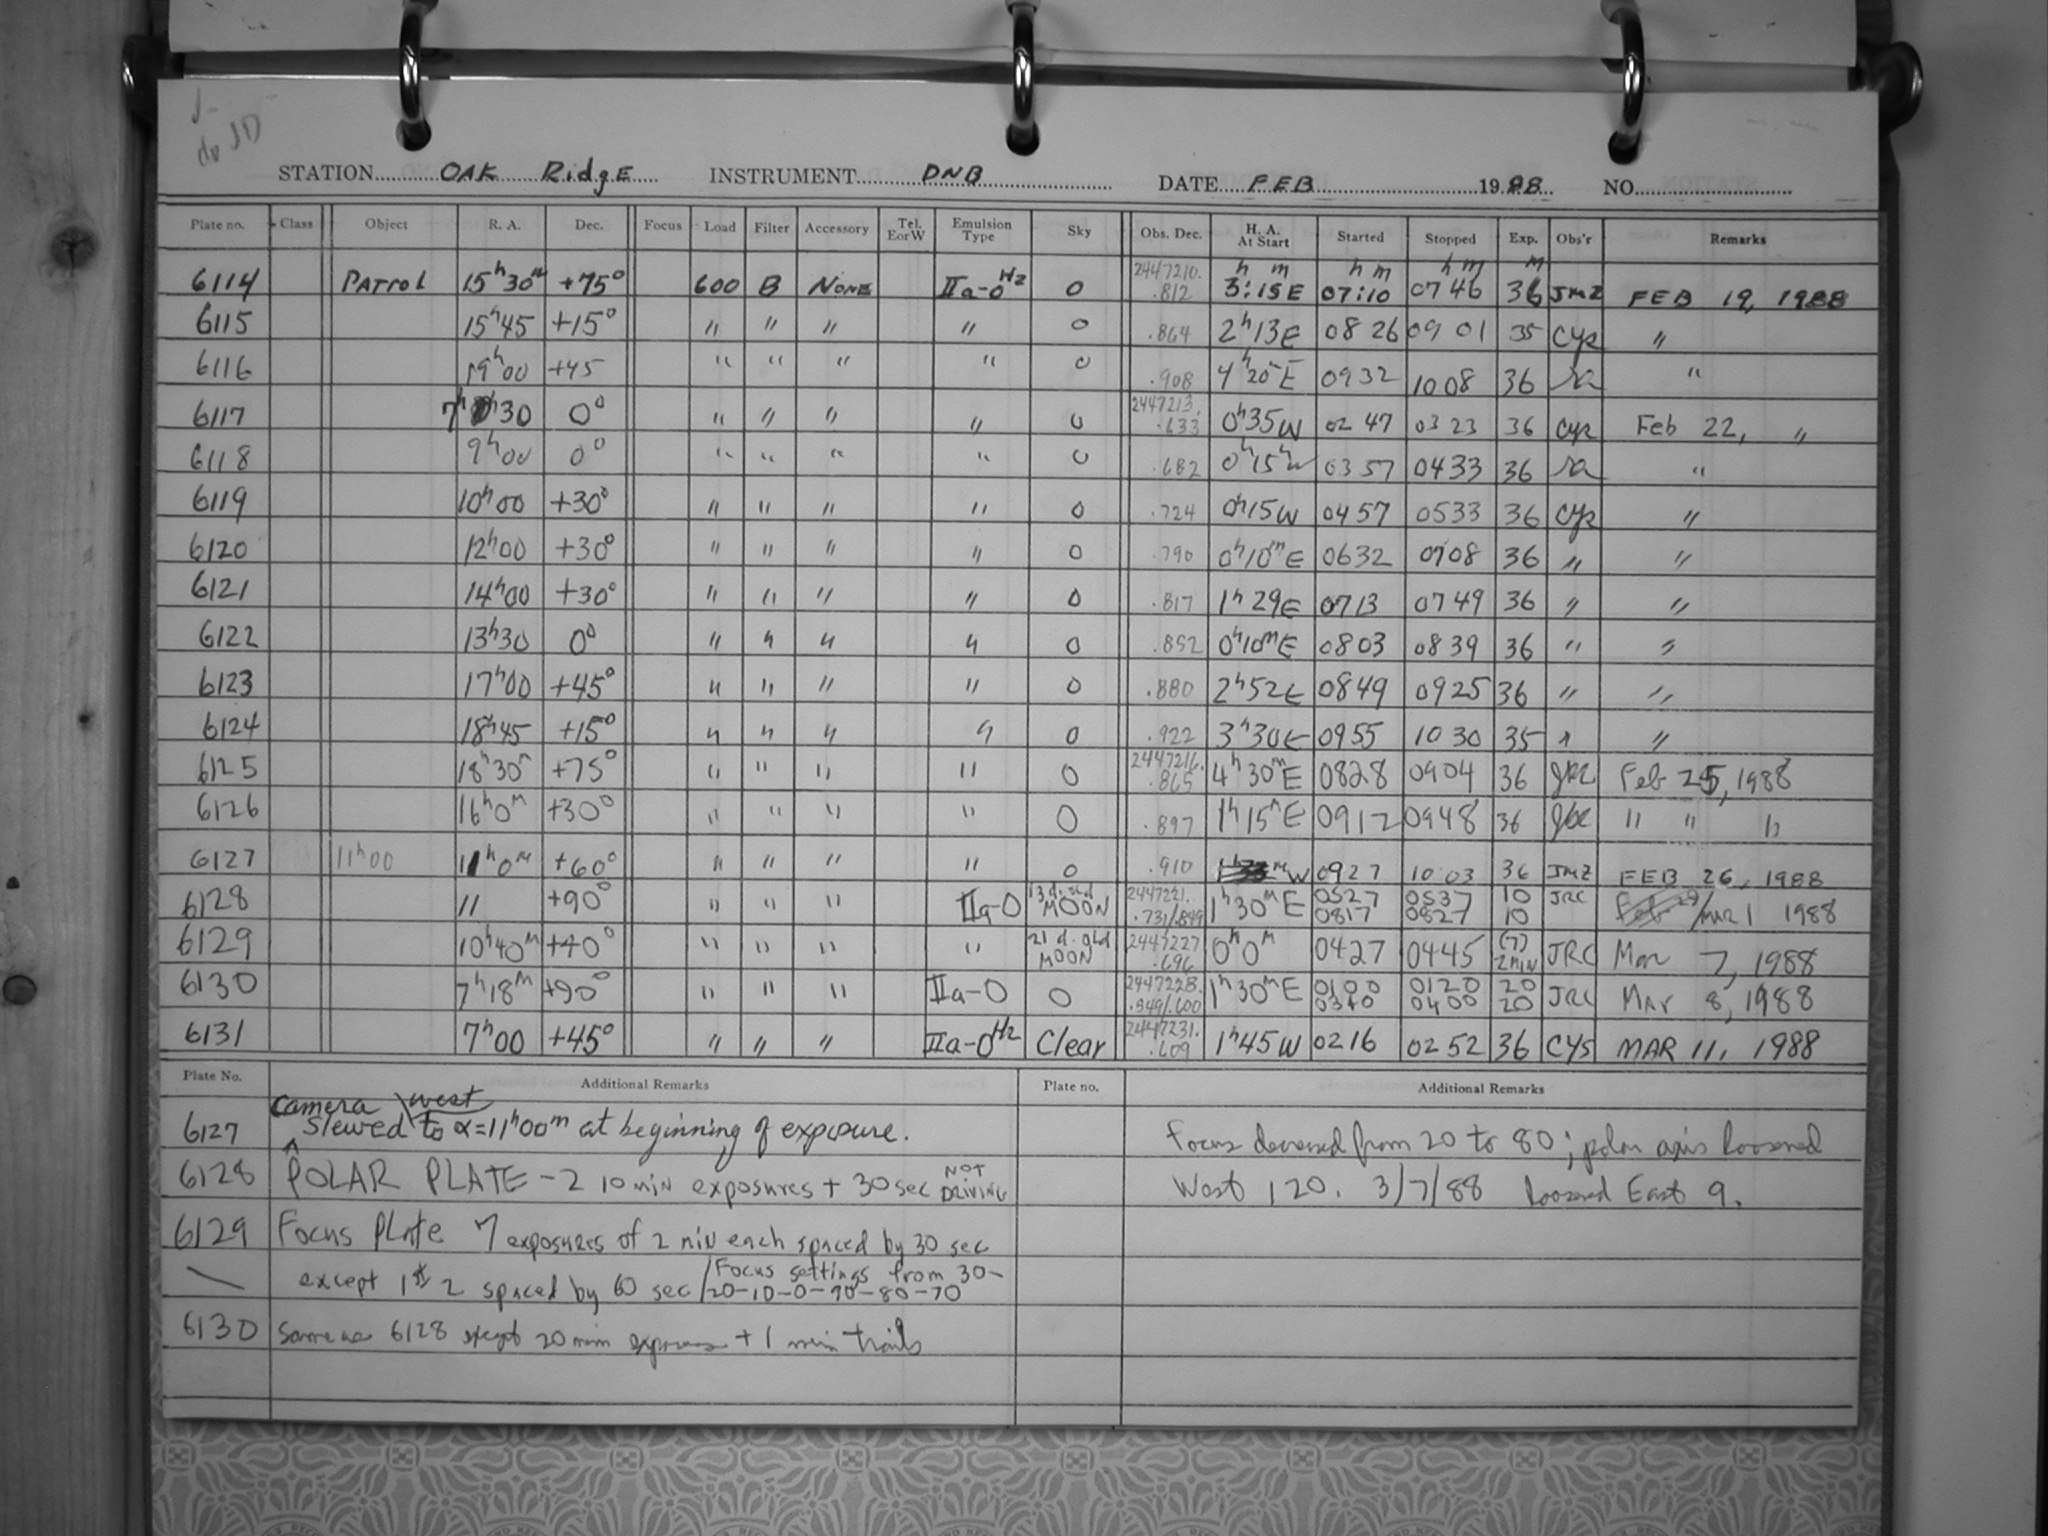 do JD
STATION OAK Ridge INSTRUMENT DNB DATE FEB 1988 NO.
Plate no. Class Object R. A. Dec. Focus Load Filter Accessory Tel. E or W Emulsion Type Sky Obs. Dec. H. A. At Start Started Stopped Exp. Obs'r Remarks
6114 PATROL 15h 30m +75° 600 B NONE IIa-O H2 0 2447210. .812 h m 3:15E h m 07:10 h m 07 46 m 36 JMZ FEB 19, 1988
6115 15h45 +15° " " " " 0 .864 2h13E 08 26 09 01 35 CYS "
6116 19h00 +45 " " " " 0 .908 4h20E 0932 1008 36 "
6117 7h30 0° " " " " 0 2447213. .633 0h35W 02 47 03 23 36 CYS Feb 22, "
6118 9h00 0° " " " " 0 .682 0h15W 03 57 0433 36 "
6119 10h00 +30° " " " " 0 .724 0h15W 0457 0533 36 CYS "
6120 12h00 +30° " " " " 0 .790 0h10mE 0632 0708 36 " "
6121 14h00 +30° " " " " 0 .817 1h29E 0713 0749 36 " "
6122 13h30 0° " " " " 0 .852 0h10mE 0803 0839 36 " "
6123 17h00 +45° " " " " 0 .880 2h52E 0849 0925 36 " "
6124 18h45 +15° " " " " 0 .922 3h30E 0955 1030 35 " "
6125 18h30m +75° " " " " 0 2447216. .865 4h30mE 0828 0904 36 JRC Feb 25, 1988
6126 16h0m +30° " " " " 0 .897 1h15mE 0912 0948 36 JRC " " "
6127 11h00 11h0m +60° " " " " 0 .910 W 0927 1003 36 JMZ FEB 26, 1988
6128 11 +90° " " " IIa-O 13 d. old MOON 2447221. .731/.849 1h30mE 0527 0817 0537 0827 10 10 JRC Feb 29/MAR 1 1988
6129 10h40m +40° " " " " 21 d. old MOON 2447227 .696 0h0m 0427 0445 (7) 2MIN JRC Mar 7, 1988
6130 7h18m +90° " " " IIa-O 0 2447228. .549/.600 1h30mE 0100 0340 0120 0400 20 20 JRC Mar 8, 1988
6131 7h00 +45° " " " IIa-O H2 Clear 2447231. .609 1h45W 0216 0252 36 CYS MAR 11, 1988
Plate No. Additional Remarks Plate no. Additional Remarks
6127 camera slewed west to α=11h00m at beginning of exposure.
6128 POLAR PLATE - 2 10 min exposures + 30 sec NOT DRIVING
6129 Focus Plate 7 exposures of 2 min each spaced by 30 sec
except 1st 2 spaced by 60 sec / Focus settings from 30-
20-10-0-90-80-70
6130 Same as 6128 except 20 min exposures + 1 min trails
Focus from 20 to 80; polar axis loosened
West 120. 3/7/88 loosened East 9.